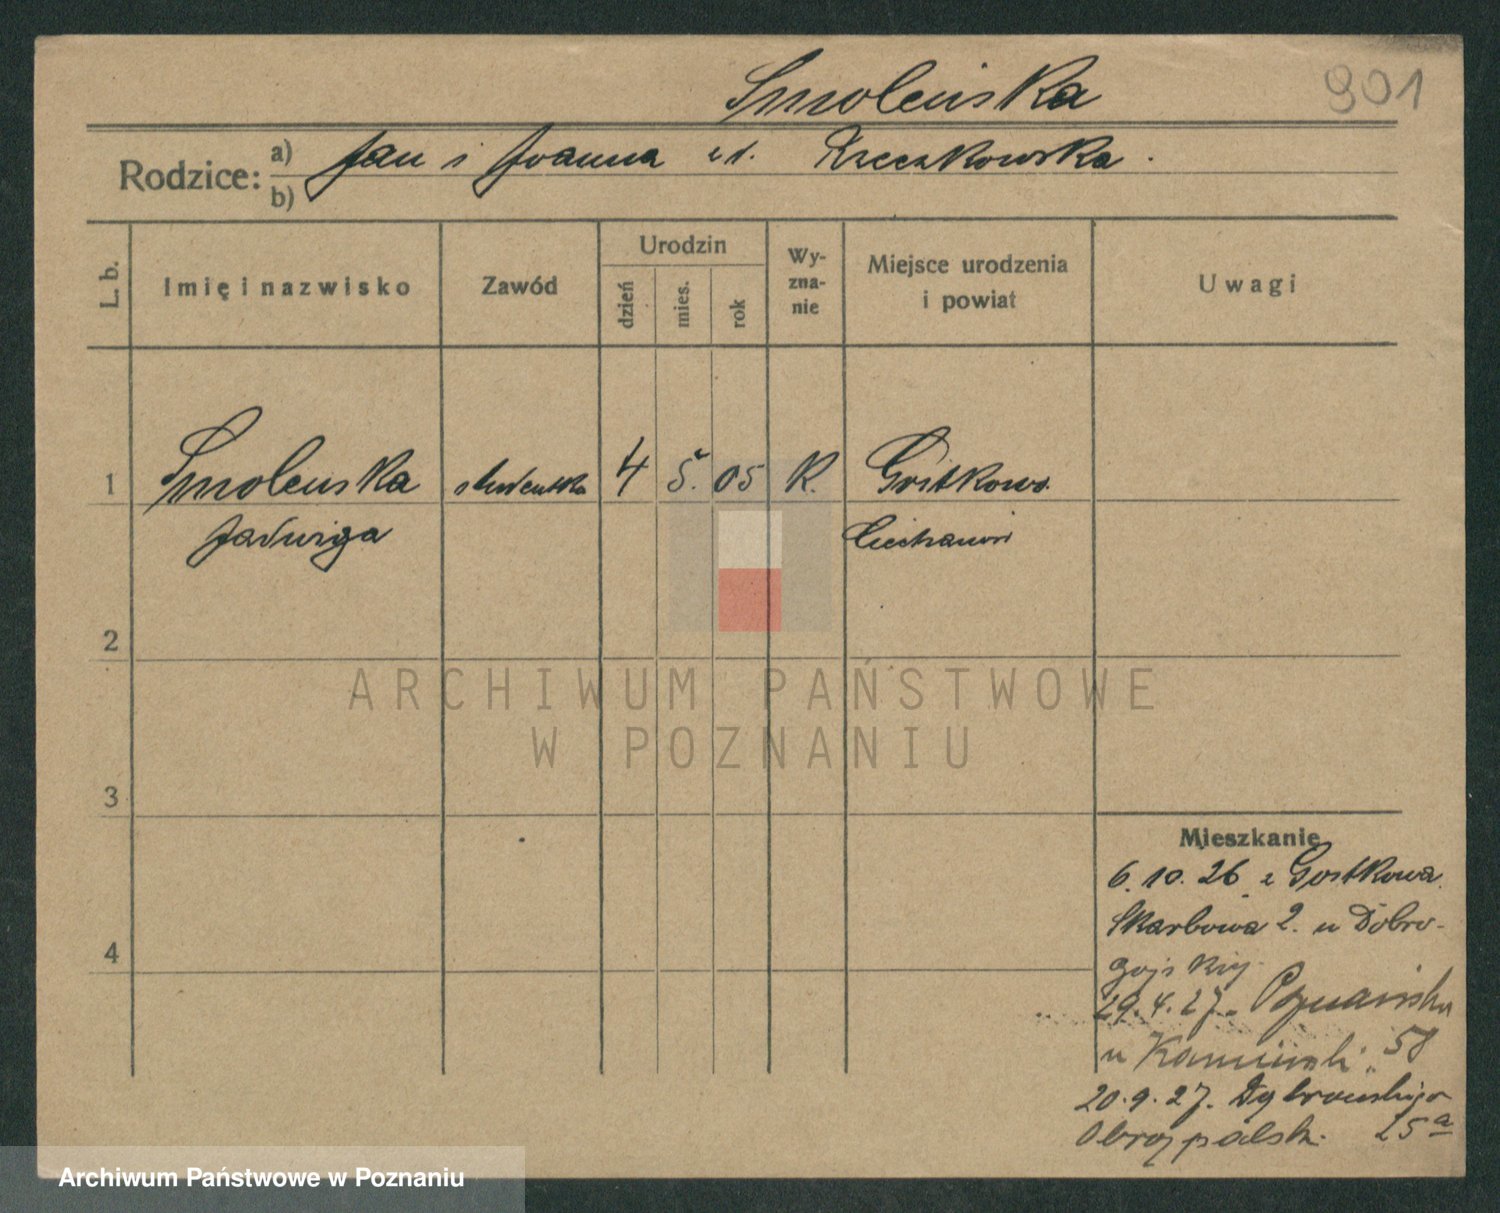 Smoleńska
901
Rodzice: a) Jan i Joanna z d. Rzeczkowska.
b)
L. b.
Imię i nazwisko
Zawód
Urodzin
dzień
mies.
rok
Wy-
zna-
nie
Miejsce urodzenia
i powiat
Uwagi
1 Smolenska studentka 4 5. 05 K. Gostkowo
Jadwiga Ciechanów
2
3
4
ARCHIWUM PAŃSTWOWE
W POZNANIU
Mieszkanie
6. 10. 26 z Gostkowa
Skarbowa 2. u Dobro-
gojskiej
29. 4. 27. Poznańska
u Kamiński 58
20. 9. 27. Dąbrowskiego
25a
Archiwum Państwowe w Poznaniu